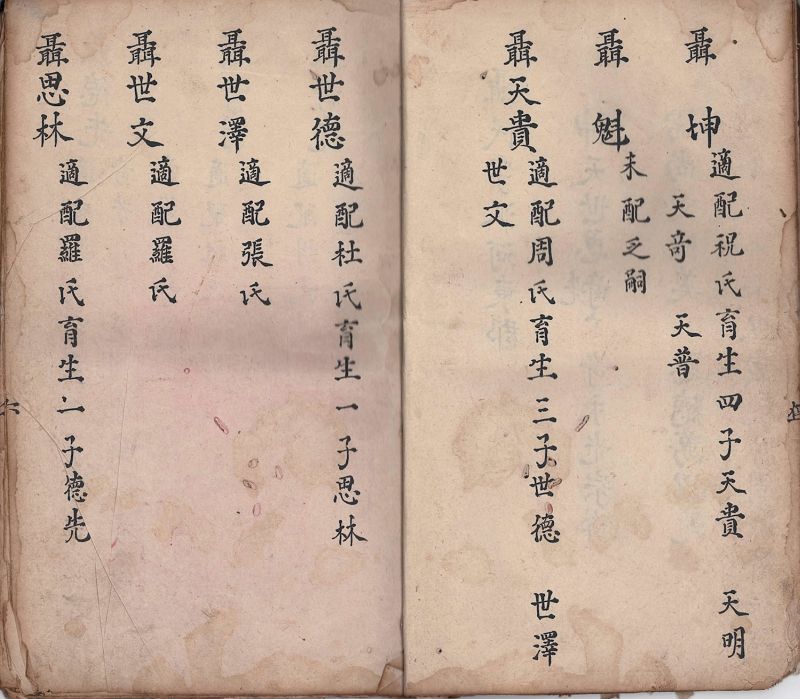 聶坤
適配祝氏育生四子天貴 天明
天竒 天普
聶魁
未配乏嗣
聶天貴
適配周氏育生三子世德 世澤
世文
聶世德
適配杜氏育生一子思林
聶世澤
適配張氏
聶世文
適配羅氏
聶思林
適配羅氏育生一子德先